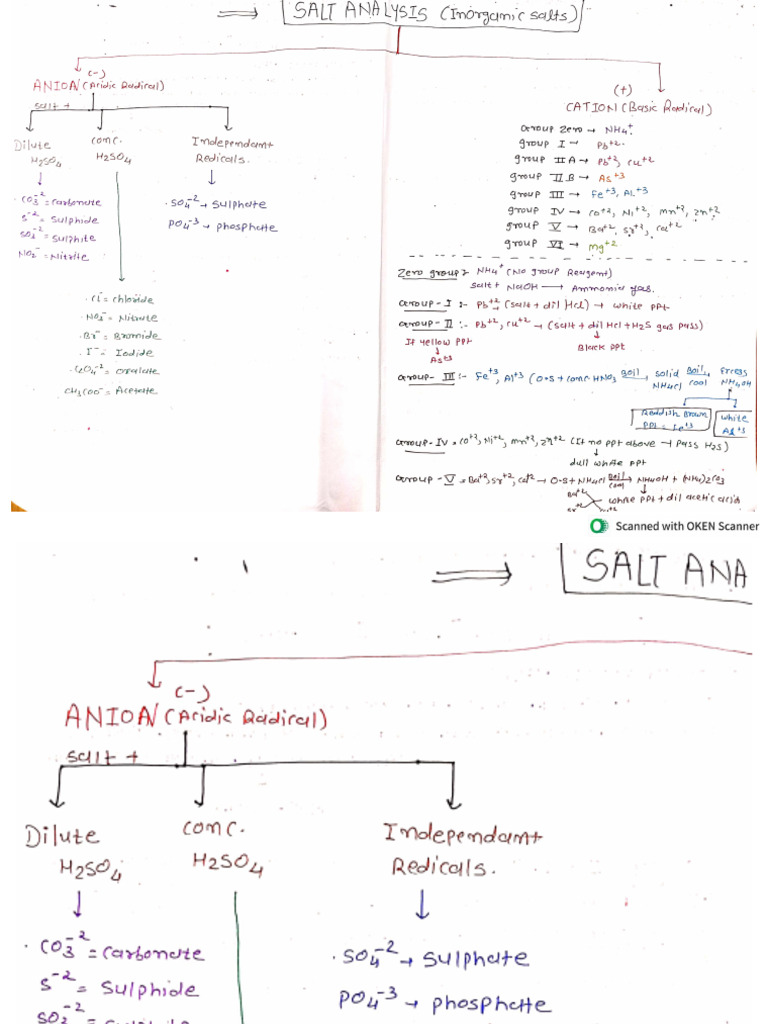 ⇒ SALT ANALYSIS (Inorganic salts)
(-)
ANION (Acidic Radical)
salt +
Dilute H2SO4
CO3^-2 = Carbonate
S^-2 = Sulphide
SO3^-2 = Sulphite
NO2^- = Nitrite
Conc. H2SO4
Cl^- = Chloride
NO3^- = Nitrate
Br^- = Bromide
I^- = Iodide
C2O4^-2 = Oxalate
CH3COO^- = Acetate
Independant Redicals.
SO4^-2 → Sulphate
PO4^-3 → Phosphate
(+)
CATION (Basic Radical)
Group Zero → NH4^+
Group I → Pb^+2
Group II A → Pb^+2, Cu^+2
Group II B → As^+3
Group III → Fe^+3, Al^+3
Group IV → Co^+2, Ni^+2, Mn^+2, Zn^+2
Group V → Ba^+2, Sr^+2, Ca^+2
Group VI → Mg^+2
Zero group :- NH4^+ (No group Reagent)
Salt + NaOH → Ammonia gas.
Group - I :- Pb^+2 → (Salt + dil HCl) → white PPt
Group - II :- Pb^+2, Cu^+2 → (Salt + dil HCl + H2S gas pass)
If yellow PPt
↓
As^+3
↓
Black PPt
Group - III :- Fe^+3, Al^+3 (O.S + Conc. HNO3 Boil → Solid NH4Cl Boil, cool Excess NH4OH
Reddish Brown PPt = Fe^+3
White Al^+3
Group - IV = Co^+2, Ni^+2, Mn^+2, Zn^+2 (If no PPt above → Pass H2S)
↓
dull white PPt
Group - V = Ba^+2, Sr^+2, Ca^+2 → O.S + NH4Cl Boil cool → NH4OH + (NH4)2CO3
↓
white PPt + dil acetic acid
Ba^+2
Sr^+2
Scanned with OKEN Scanner
⇒ SALT ANA
(-)
ANION (Acidic Radical)
salt +
Dilute H2SO4
CO3^-2 = Carbonate
S^-2 = Sulphide
SO3^-2
Conc. H2SO4
Independant Redicals.
SO4^-2 → Sulphate
PO4^-3 → Phosphate